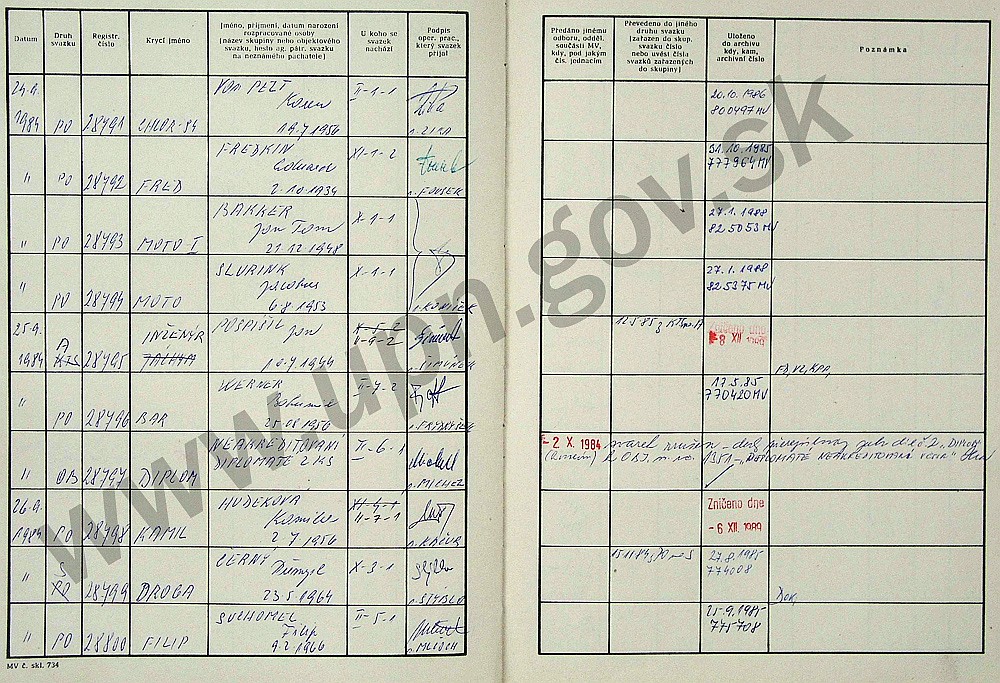 Datum
Druh svazku
Registr. číslo
Krycí jméno
Jméno, příjmení, datum narození
rozpracované osoby
(název skupiny nebo objektového
svazku, heslo ag. pátr. svazku
na neznámého pachatele)
U koho se
svazek
nachází
Podpis
oper. prac.,
který svazek
přijal
Předáno jinému
odboru, odděl.
součásti MV,
kdy, pod jakým
čís. jednacím
Převedeno do jiného
druhu svazku
(zařazen do skup.
svazku číslo
nebo uvést čísla
svazků zařazených
do skupiny)
Uloženo
do archivu
kdy, kam,
archivní číslo
Poznámka
1984 PO 28791 CHLOR-84
19.7.1956
II-1-1
20.10.1986
800497 MV
" PO 28792 FRED
FREDKIN
Edward
2.10.1934
XI-1-2
31.10.1985
777964 MV
" PO 28793 MOTO I
BAKKER
Jan Tom
21.12.1948
X-1-1
27.1.1988
825053 MV
" PO 28794 MOTO
SLURINK
Jacobus
6.8.1953
X-1-1
27.1.1988
825375 MV
25.9.
1984 A KTS 28795 INŽENÝR
POSPÍŠIL Jan
10.7.1944
II-9-2
Zničeno dne
8 XII.
" PO 28796 BAR
WERNER
Bohumil
25.08.1956
II-7-2
17.5.85
770420 MV
" OB 28797 DIPLOM
NEAKREDITOVANÍ
DIPLOMATÉ Z KS
II-6-1
r. MICHEZ
- 2 X. 1984
26.9.
1984 PO 28798 KAMIL
HUDEKOVÁ
Kamila
2.7.1956
XI-9-1
II-7-1
Zničeno dne
- 6 XII. 1989
" S PO 28799 DROGA
ČERNÝ
23.5.1964
X-3-1
r. STYBLO
27.8.1985
774008
" PO 28800 FILIP
SUCHOMEL
Filip
9.2.1966
II-5-1
25.9.1985
775708
MV č. skl. 734
www.upn.gov.sk